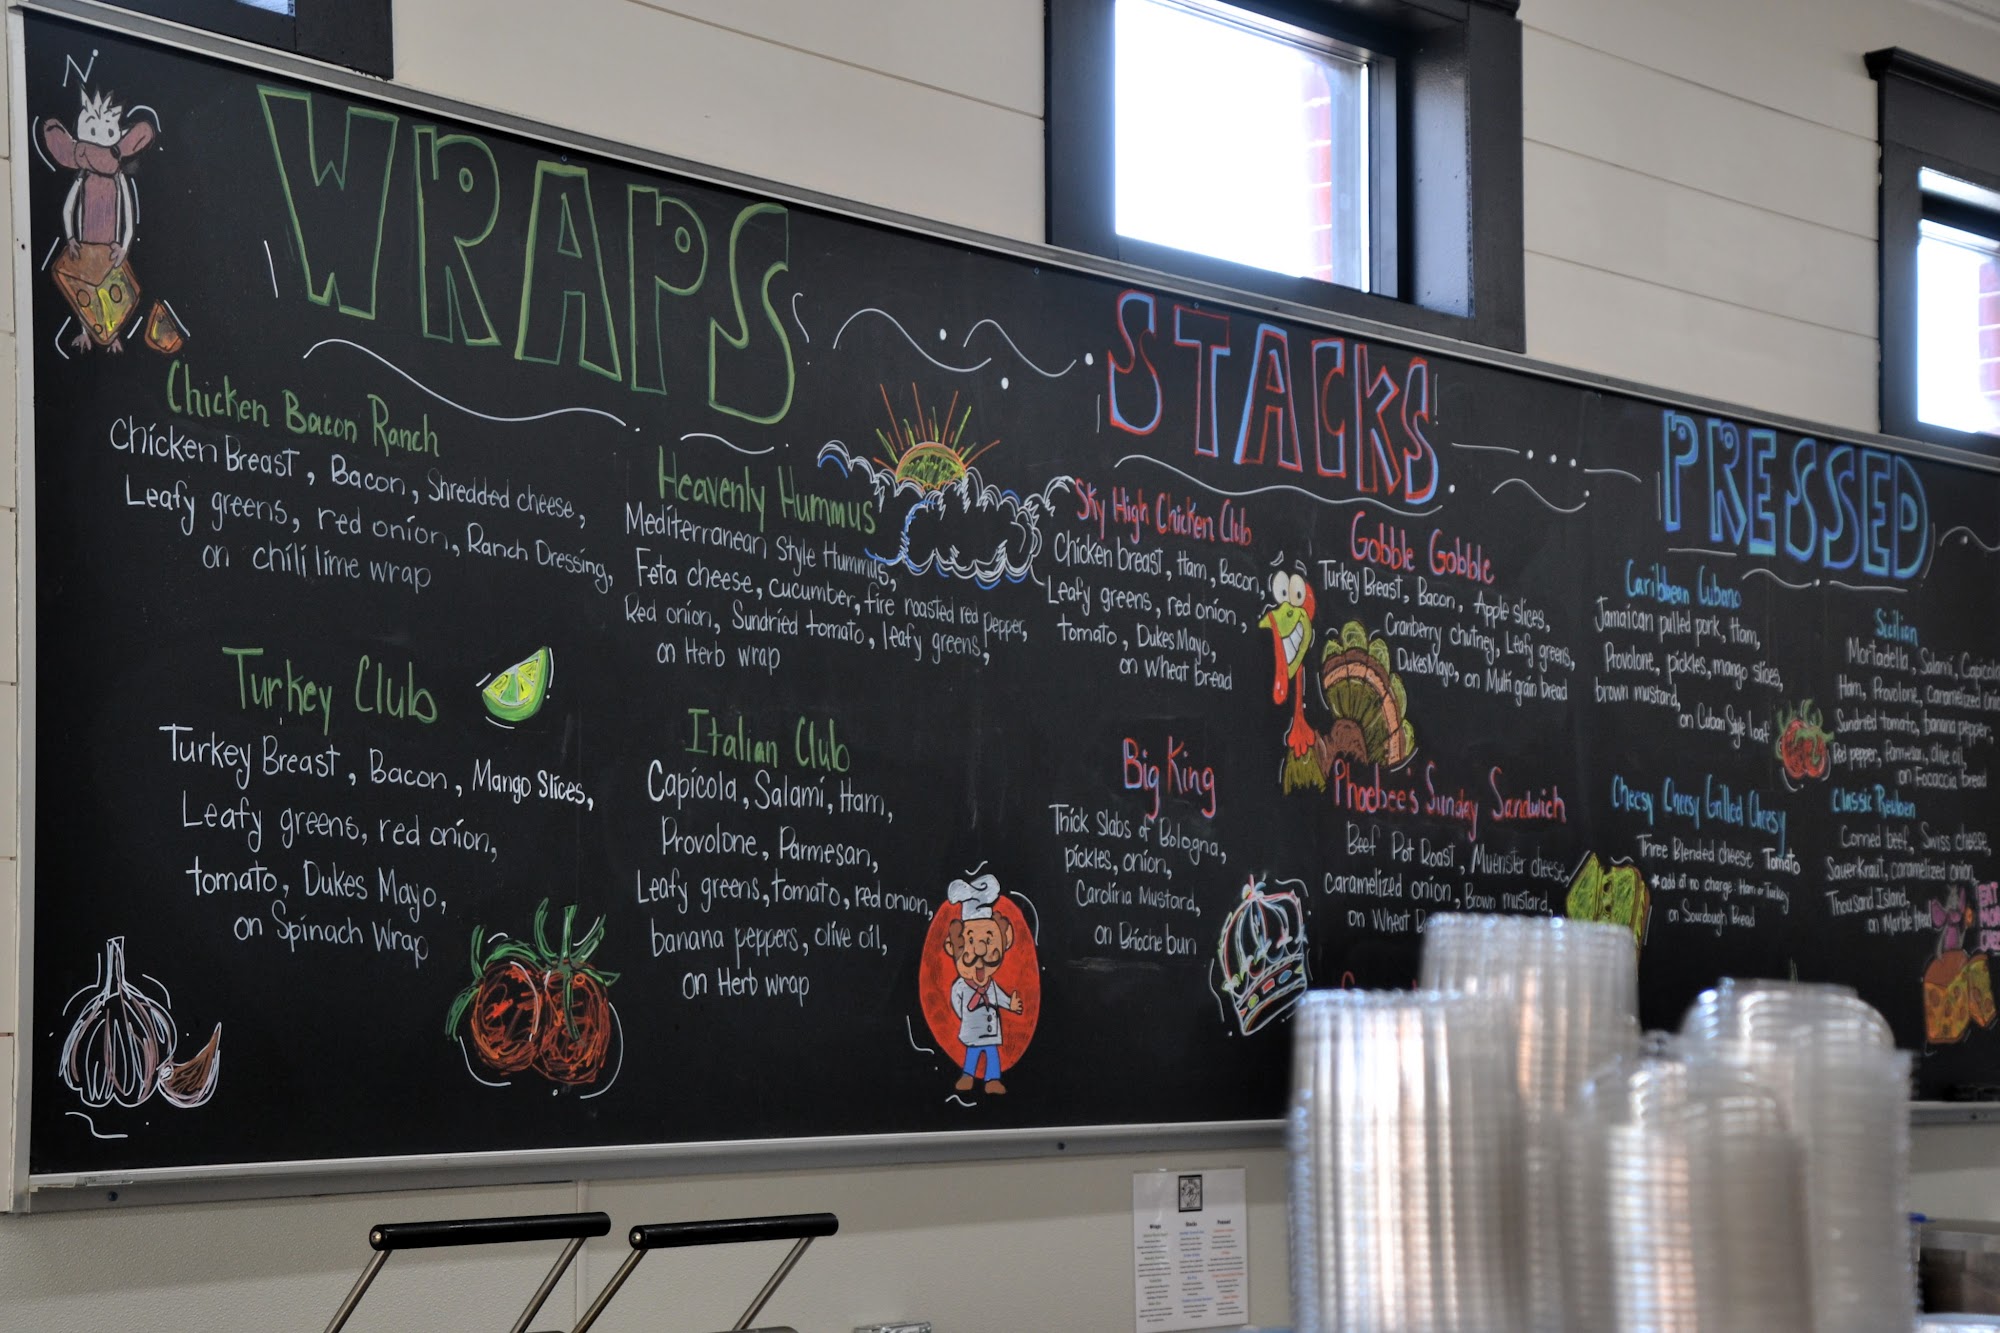 WRAPS
Chicken Bacon Ranch
Chicken Breast, Bacon, Shredded cheese,
Leafy greens, red onion, Ranch Dressing,
on chili lime wrap
Turkey Club
Turkey Breast, Bacon, Mango Slices,
Leafy greens, red onion,
tomato, Dukes Mayo,
on Spinach Wrap
Heavenly Hummus
Mediterranean Style Hummus,
Feta cheese, cucumber, fire roasted red pepper,
Red onion, Sundried tomato, leafy greens,
on Herb wrap
Italian Club
Capicola, Salami, Ham,
Provolone, Parmesan,
Leafy greens, tomato, red onion,
banana peppers, olive oil,
on Herb wrap
STACKS
Sky High Chicken Club
Chicken breast, Ham, Bacon,
Leafy greens, red onion,
tomato, Dukes Mayo,
on Wheat Bread
Big King
Thick slabs of Bologna,
pickles, onion,
Carolina Mustard,
on Brioche bun
Gobble Gobble
Turkey Breast, Bacon, Apple slices,
Cranberry chutney, Leafy greens,
Dukes Mayo, on Multi grain bread
Phoebee's Sunday Sandwich
Beef Pot Roast, Muenster cheese,
caramelized onion, Brown mustard,
on Wheat
PRESSED
Caribbean Cubano
Jamaican pulled pork, Ham,
Provolone, pickles, mango slices,
brown mustard,
on Cuban Style loaf
Cheesy Cheesy Grilled Cheesy
Three Blended cheese Tomato
*add at no charge: Ham or Turkey
on Sourdough Bread
Sicilian
Mortadella, Salami, Capicola
Ham, Provolone, Caramelized
Sundried tomato, banana pepper,
Red pepper, Parmesan, olive oil,
on Focaccia bread
Classic Reuben
Corned beef, Swiss cheese,
Sauerkraut, caramelized onion,
Thousand Island,
on Marble bread
Wraps
Stacks
Pressed